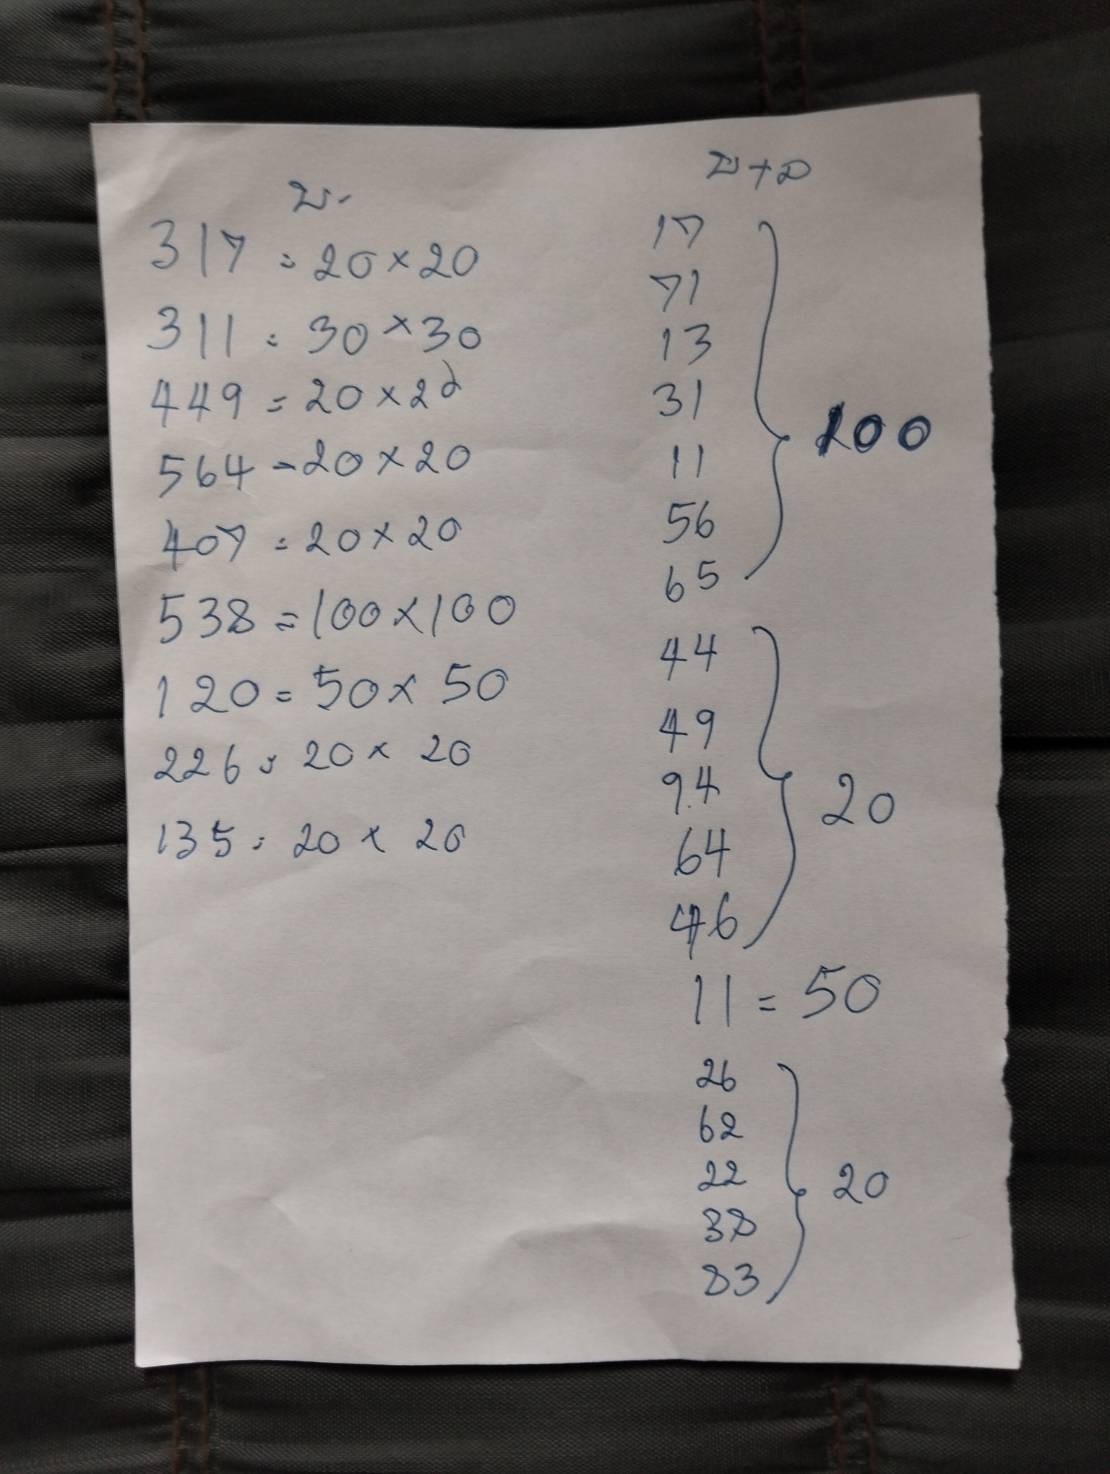 บ.
317 = 20 × 20
311 = 30 × 30
449 = 20 × 20
564 - 20 × 20
407 = 20 × 20
538 = 100 × 100
120 = 50 × 50
226 = 20 × 20
135 = 20 × 20
บ + ล
17
71
13
31
11
56
65
100
44
49
94
64
46
20
11 = 50
26
62
22
38
83
20